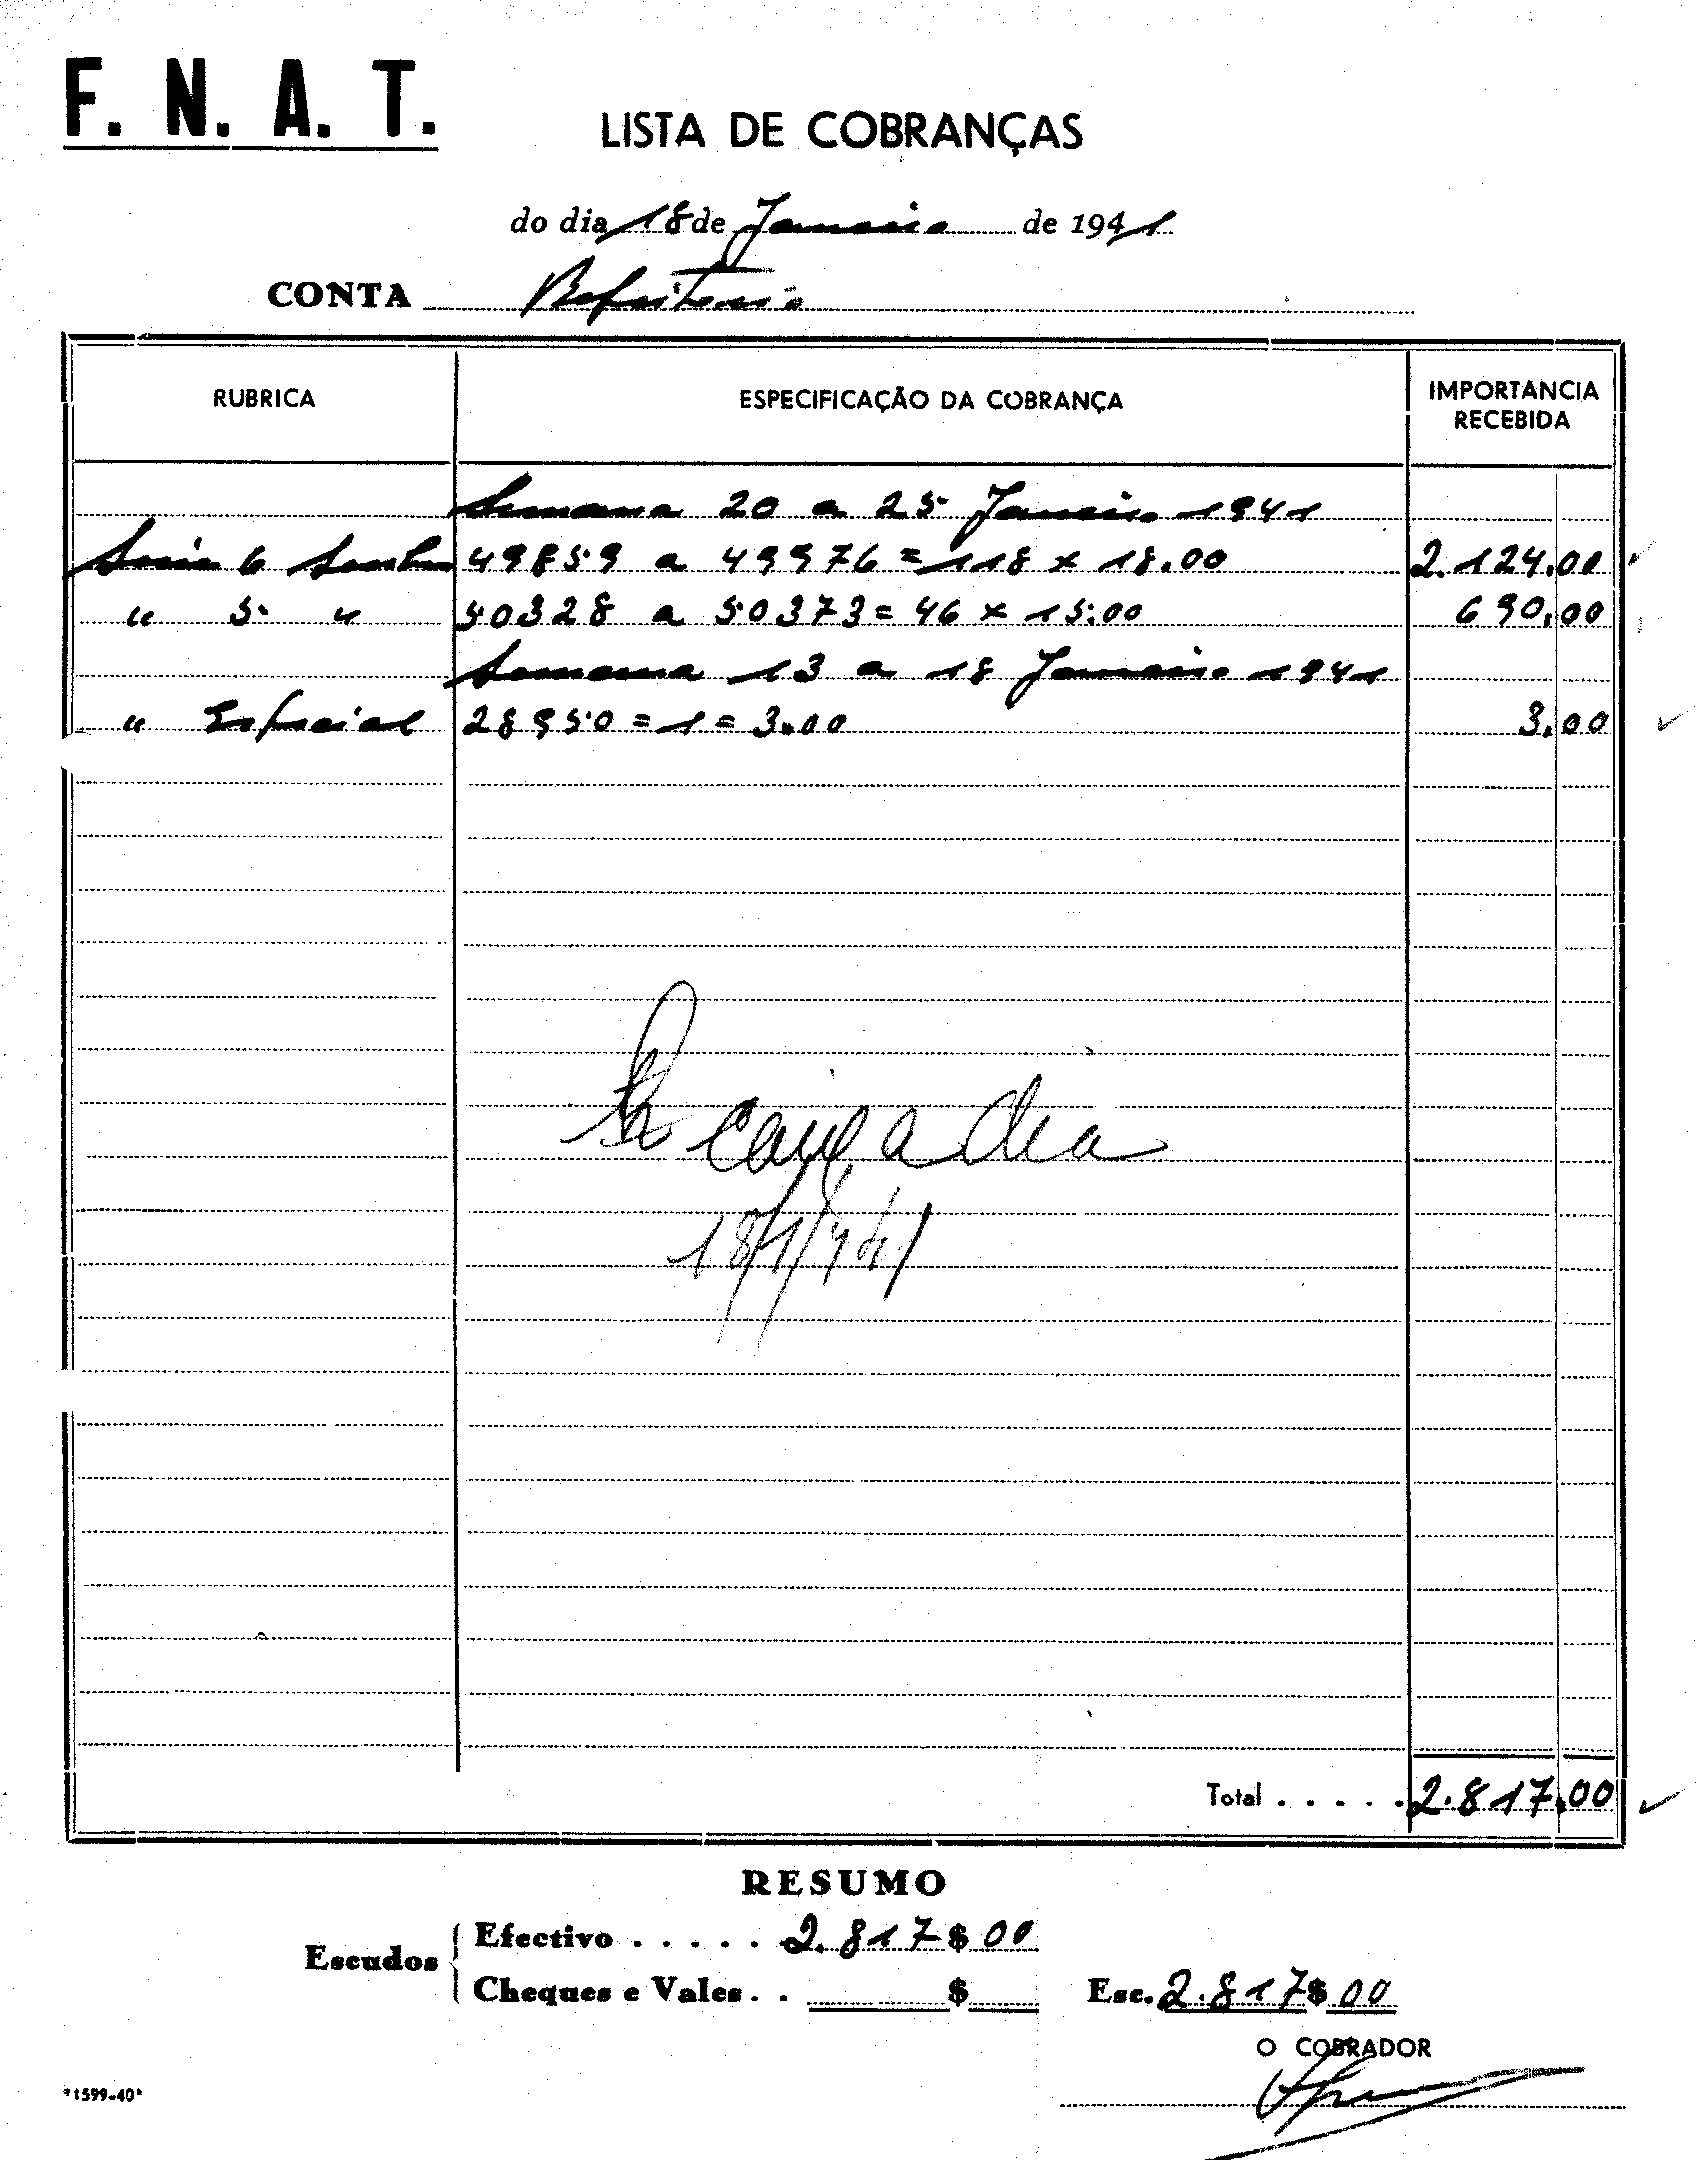 F. N. A. T.
LISTA DE COBRANÇAS
do dia 18 de Janeiro de 1941
CONTA Refeitorio
RUBRICA ESPECIFICAÇÃO DA COBRANÇA IMPORTANCIA RECEBIDA
Semana 20 a 25 Janeiro 1941
Serie 6 Senhas 49859 a 49976 = 118 x 18.00 2.124.00
" 5 " 50328 a 50373 = 46 x 15.00 690.00
Semana 13 a 18 Janeiro 1941
" Especial 28950 = 1 = 3.00 3.00
18/1/941
Total . . . . . 2.817.00
RESUMO
Escudos Efectivo . . . . . 2.817$00
Cheques e Vales . . $ Esc. 2.817$00
O COBRADOR
*1599-40*